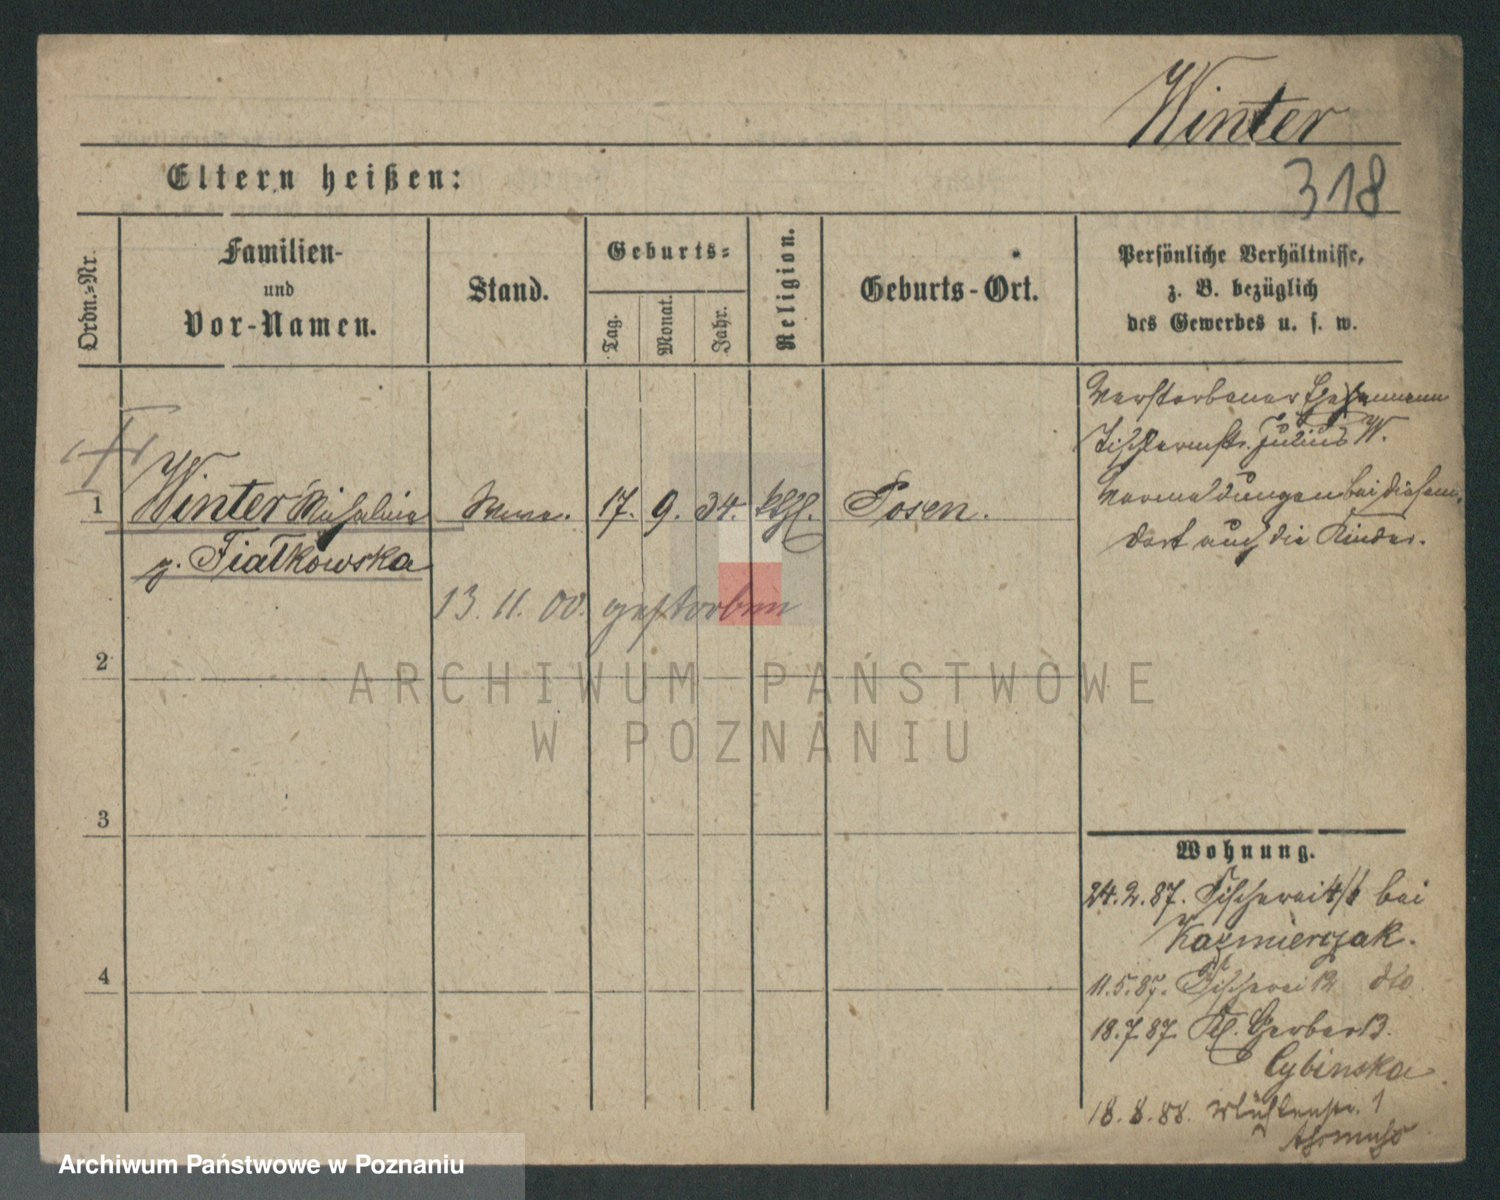 Winter
318
Eltern heißen:
Ordn.=Nr.
Familien-
und
Vor-Namen.
Stand.
Geburts=
Tag.
Monat.
Jahr.
Religion.
Geburts-Ort.
Persönliche Verhältnisse,
z. B. bezüglich
des Gewerbes u. s. w.
Verstorbener Ehemann
Tischlermstr. Julius W.
Vermeldungen bei diesem,
dort auch die Kinder.
1
Winter Michalina
g. Fiałkowska
Wwe.
17. 9. 34. kth.
Posen.
13. 11. 00. gestorben
2
3
4
Wohnung.
24.2.87. Fischerei 4/6 bei
Kaźmierczak.
11.5.87. Fischerei 12 dto
18.7.87. Kl. Gerber 13.
Cybinska
18.8.88. Mühlenstr. 1
ARCHIWUM PAŃSTWOWE
W POZNANIU
Archiwum Państwowe w Poznaniu